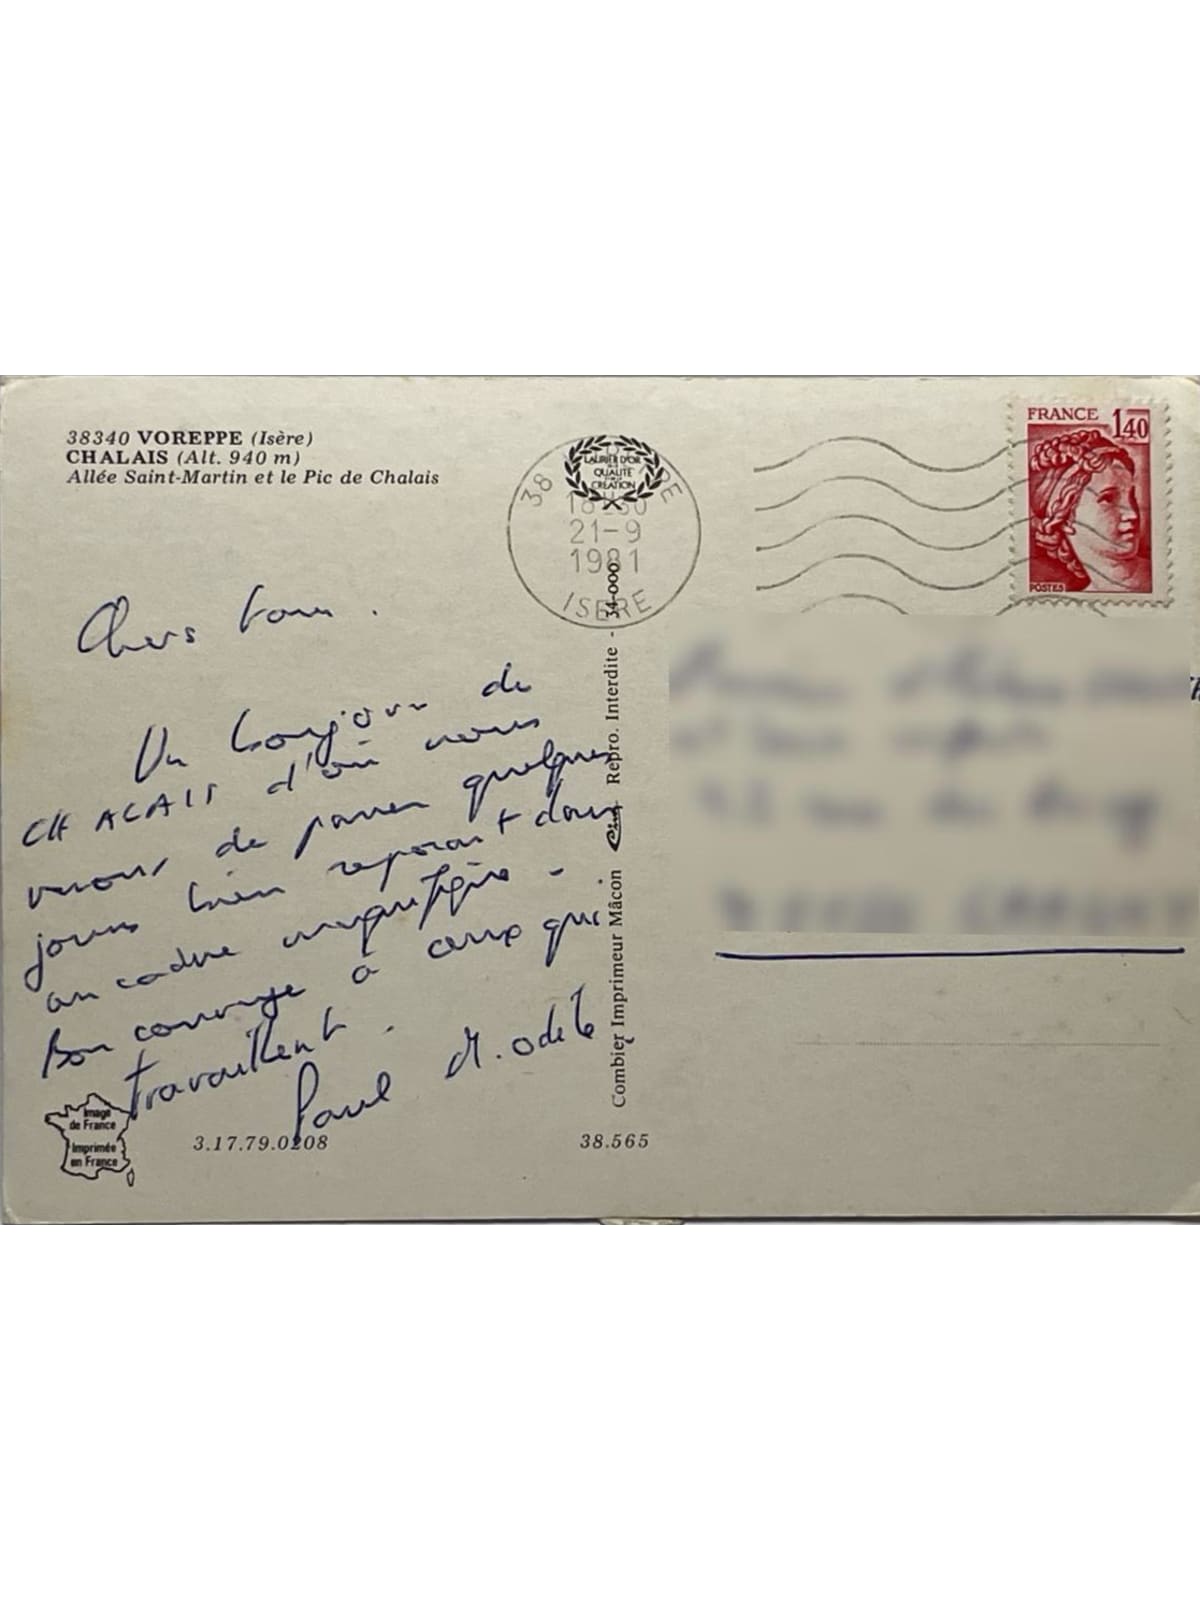 38340 VOREPPE (Isère)
CHALAIS (Alt. 940 m)
Allée Saint-Martin et le Pic de Chalais
FRANCE 1,40
POSTES
LAURIER D'OR
QUALITÉ
CRÉATION
38
21-9
1981
ISERE
Chers tous.
Un bonjour de
CHALAIS d'où nous
venons de passer quelques
jours bien reposant dans
un cadre magnifique -
Bon courage à ceux qui
travaillent -
Paul M. odete
Combier Imprimeur Mâcon Cim Repro. Interdite - 34-000
Image
de France
Imprimée
en France
3.17.79.0208
38.565